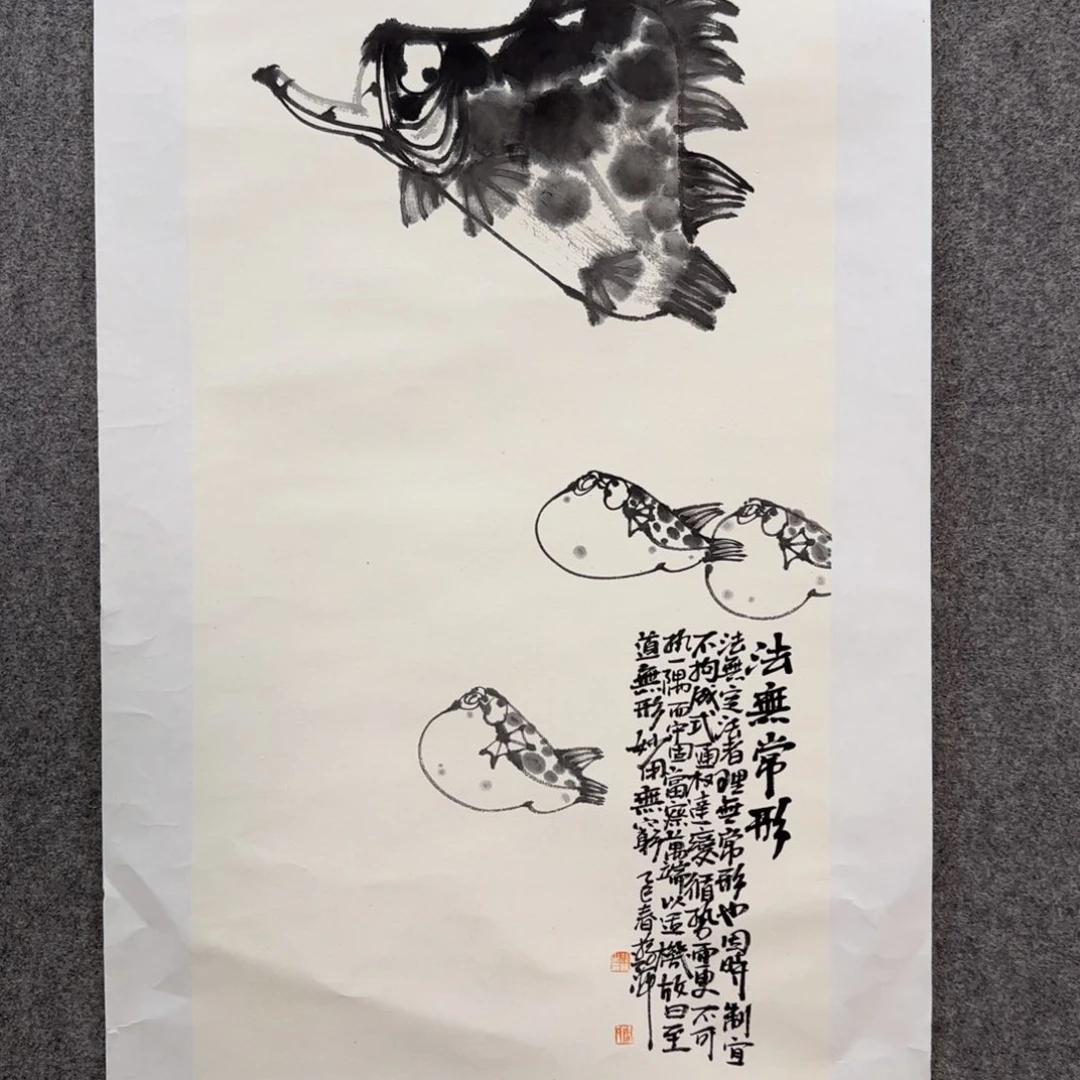 法無常形
法無定法者理無常形也因時制宜
不拘成式通权達變循勢而更不可
执一隅而守固當察萬端以适機故曰至
道無形妙用無窮 乙巳春